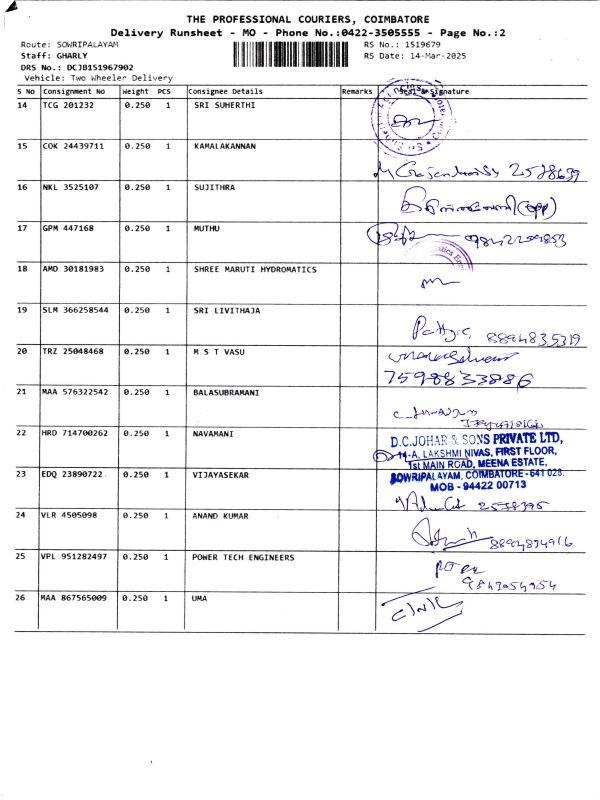 THE PROFESSIONAL COURIERS, COIMBATORE
Delivery Runsheet - MO - Phone No.:0422-3505555 - Page No.:2
Route: SOWRIPALAYAM RS No.: 1519679
Staff: GHARLY RS Date: 14-Mar-2025
DRS No.: DCJB151967902
Vehicle: Two Wheeler Delivery
S No Consignment No Weight PCS Consignee Details Remarks Seal & Signature
14 TCG 201232 0.250 1 SRI SUHERTHI
15 COK 24439711 0.250 1 KAMALAKANNAN
16 NKL 3525107 0.250 1 SUJITHRA
17 GPM 447168 0.250 1 MUTHU
18 AMD 30181983 0.250 1 SHREE MARUTI HYDROMATICS
19 SLM 366258544 0.250 1 SRI LIVITHAJA
8894835319
20 TRZ 25048468 0.250 1 M S T VASU
7598833886
21 MAA 576322542 0.250 1 BALASUBRAMANI
22 HRD 714700262 0.250 1 NAVAMANI
D.C.JOHAR & SONS PRIVATE LTD,
14-A, LAKSHMI NIVAS, FIRST FLOOR,
1st MAIN ROAD, MEENA ESTATE,
SOWRIPALAYAM, COIMBATORE - 641 028.
MOB - 94422 00713
23 EDQ 23890722 0.250 1 VIJAYASEKAR
24 VLR 4505098 0.250 1 ANAND KUMAR
25 VPL 951282497 0.250 1 POWER TECH ENGINEERS
26 MAA 867565009 0.250 1 UMA